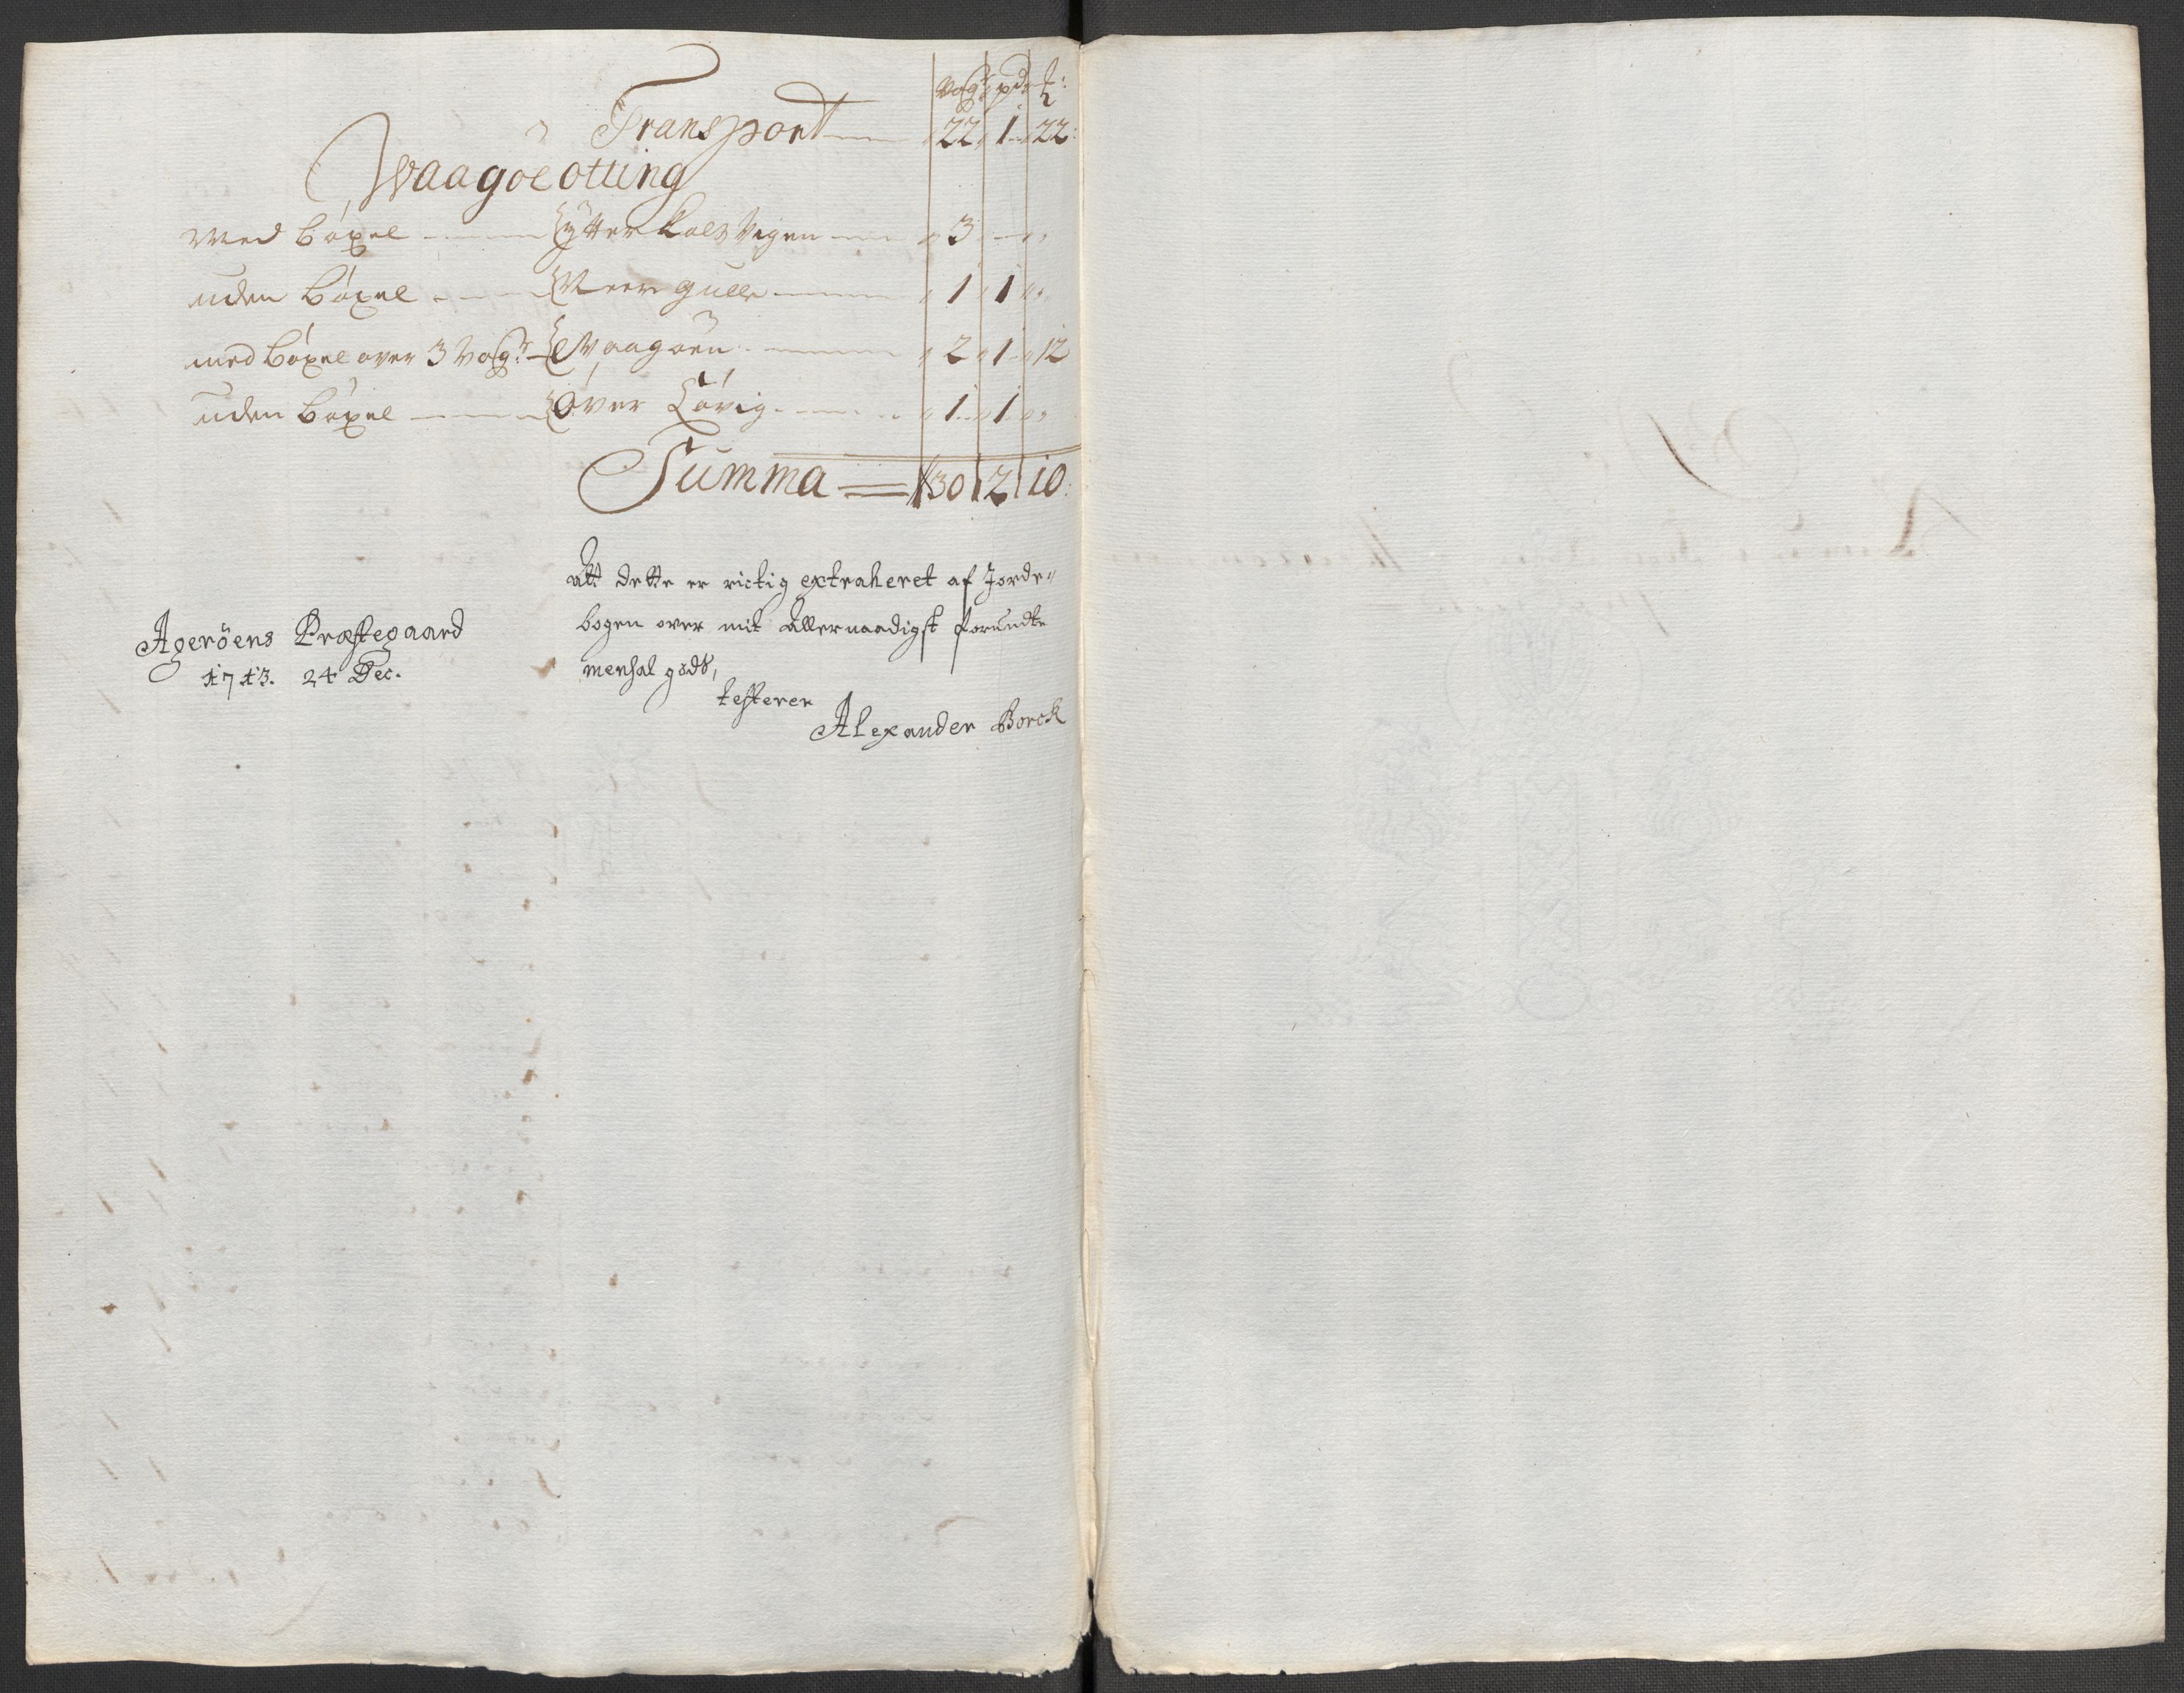 Vogr pd ℔:
Transport 22 1 22:
Waagöe otting
Med böxel Ytter Kalsvigen 3
uden böxel Meergulle 1 1
med böxel over 3 Vogr Waagöen 2 1 12
uden böxel Over Løvig 1 1
Summa 30 2 10:
Att dette er rictig extraheret af Jorde-
bogen over mit allernaadigst forundte
mensal gods,
testerer
Alexander Borck
Agerøens Præstegaard
1713. 24 Dec.